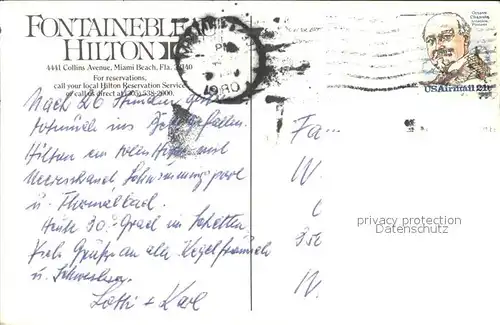 FONTAINEBLEAU
HILTON
4441 Collins Avenue, Miami Beach, Fla. 33140
For reservations,
call your local Hilton Reservation Service
or call us direct at 538-2000.
1980
Octave Chanute
Aviation Pioneer
USAirmail 21c
Nach 26 Stunden
todmüde ins
Hilton am
Meeresstrand, Schwimmingpool
u. Thermalbad.
Heute 30°-Grad im Schatten
Viele Grüße an alle Kegelfreunde
u. Schwestern
Lotti + Karl
Fa...
W.
350
W.
privacy protection
Datenschutz